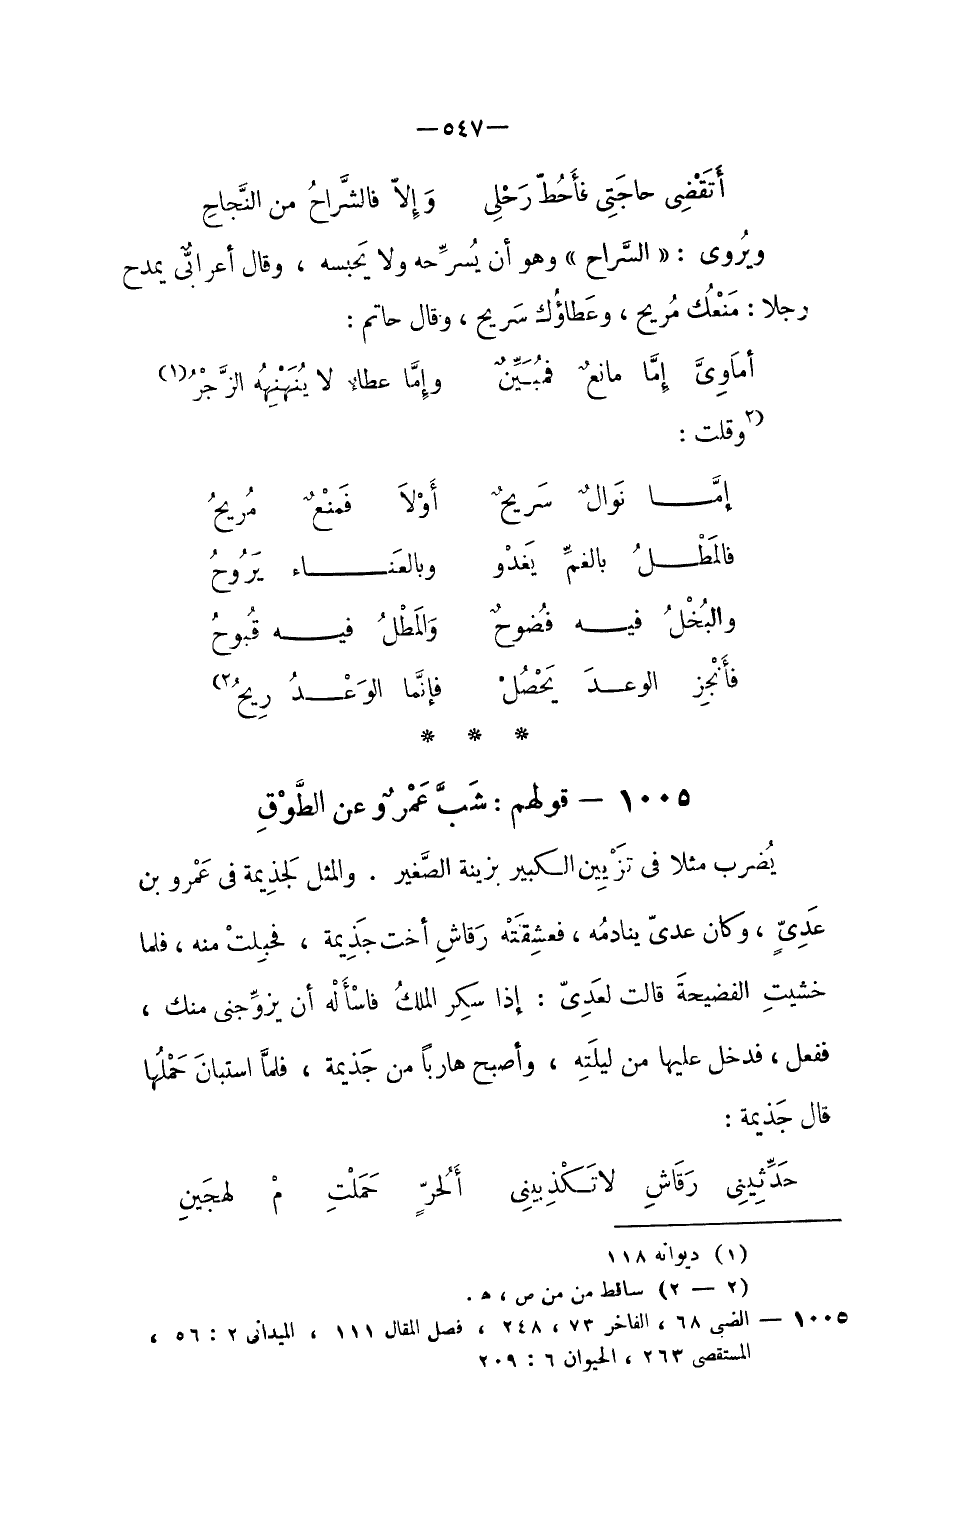 —٥٤٧—
أَتَقْضِى حاجَتِى فأَحُطّ رَحْلِى وَإِلاّ فالشَّراحُ من النَّجاحِ
ويُروى : « السَّراح » وهو أن يُسرِّحه ولا يَحبسه ، وقال أعرابىٌّ يمدح
رجلا : مَنْعُك مُريح ، وعَطاؤُك سَريح ، وقال حاتم :
أماَوِىَّ إِمَّا مانعٌ فمُبَيِّنٌ وإِمَّا عطاء لا يُنَهْنِهُه الزَّجْرُ(١)
(٢وقلت :
إِمَّــا نَوالٌ سَريحٌ أَوْلاَ فَمَنْعٌ مُريحُ
فالمَطْــلُ بالغمِّ يَغدْو وبالعَنــاء يَرُوحُ
والبُخْلُ فيــه فُضوحٌ وَالمَطْلُ فيــه قُبوحُ
فأَنْجِزِ الوعــدَ يَحْصُلْ فإنَّما الوَعْــدُ رِيحُ٢)
* * *
١٠٠٥ — قولهم : شَبَّ عَمْرٌو عن الطَّوْقِ
يُضرب مثلا فى تزْيين الكبير بزينة الصَّغير . والمثل لجَذِيمة فى عَمْرو بن
عَدِىٍّ ، وكان عدىّ ينادمُه ، فعشِقَتْه رَقاشِ أخت جَذِيمة ، فحبِلتْ منه ، فلما
خشيتِ الفضيحةَ قالت لعَدِىّ : إذا سَكِر الملكُ فاسْأَلْه أن يزوِّجنى منك ،
ففعل ، فدخل عليها من ليلَتِه ، وأصبح هارباً من جَذيمة ، فلمَّا استبانَ حَمْلُها
قال جَذيمة :
حَدِّثِينِى رَقَاشِ لاتَكْذِبِينِى أَلِحُرٍّ حَمَلْتِ مْ لهجَينِ
(١) ديوانه ١١٨
(٢ — ٢) ساقط من من ص ، ه .
١٠٠٥ — الضبى ٦٨ ، الفاخر ٧٣ ، ٢٤٨ ، فصل المقال ١١١ ، الميدانى ٢ : ٥٦ ،
المستقصى ٢٦٣ ، الحيوان ٦ : ٢٠٩